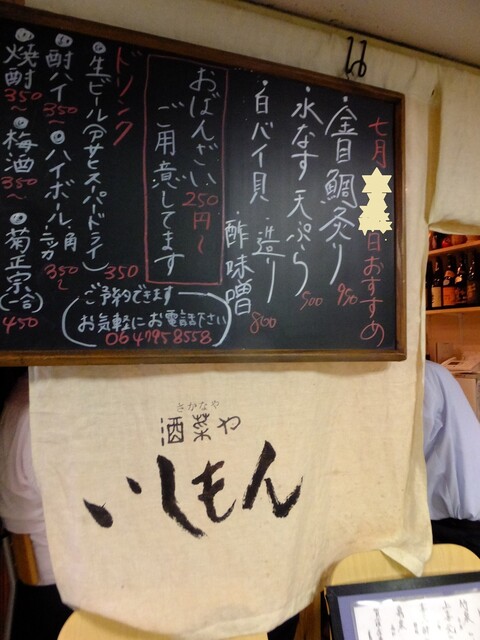 七月
日おすすめ
・金目鯛炙り 980
・水なす天ぷら 500
・白バイ貝 造り
酢味噌 800
おばんざい 250円〜
ご用意してます
ドリンク
◎生ビール(アサヒスーパードライ) 350
◎酎ハイ 350〜
◎ハイボール・角 ニッカ 350〜
◎焼酎 350〜
◎梅酒 350〜
◎菊正宗(一合) 450
ご予約できます
お気軽にお電話下さい
0647958558
さかなや
酒菜や
いしもん